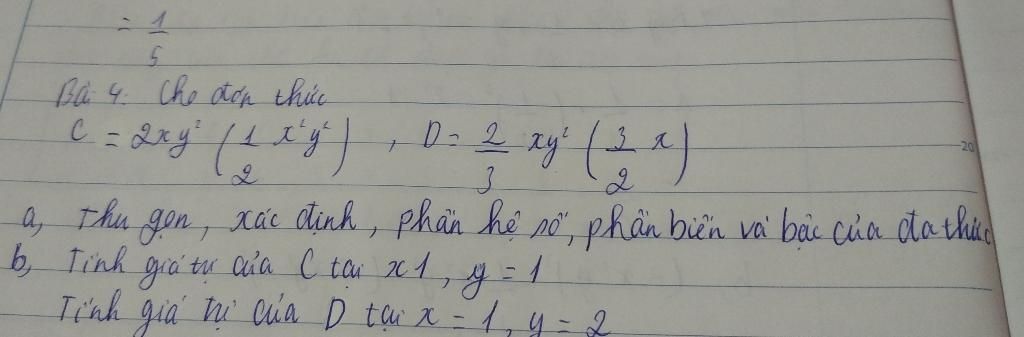 = 1/5
Bài 4: Cho đơn thức
C = 2xy² (1/2 x²y²) , D = 2/3 xy² (3/2 x)
20
a, Thu gọn, xác định, phần hệ số, phần biến và bậc của đa thức
b, Tính giá trị của C tại x1, y = 1
Tính giá trị của D tại x = 1, y = 2